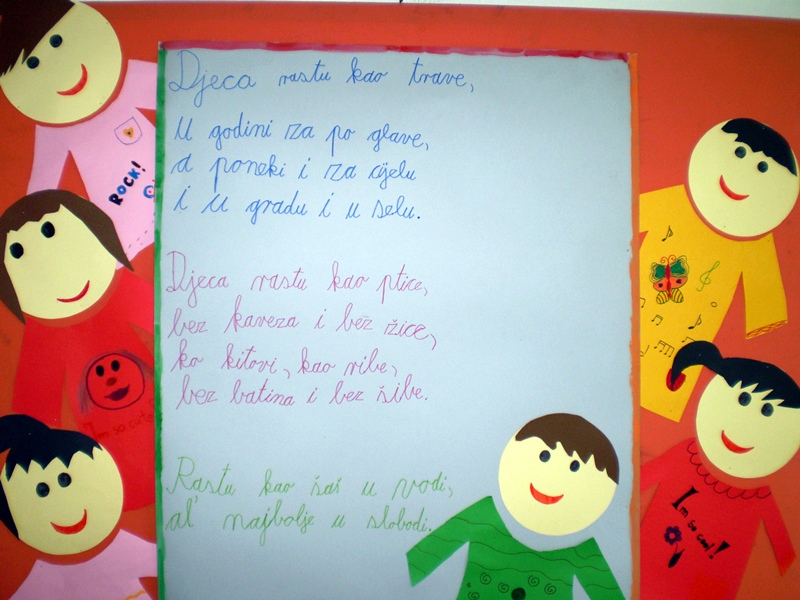 Djeca rastu kao trave,
U godini za po glave,
a poneki i za cijelu
i u gradu i u selu.
Djeca rastu kao ptice,
bez kaveza i bez žice,
ko kitovi, kao ribe,
bez batina i bez šibe.
Rastu kao šaš u vodi,
al' najbolje u slobodi.
ROCK!
I'm so cool!